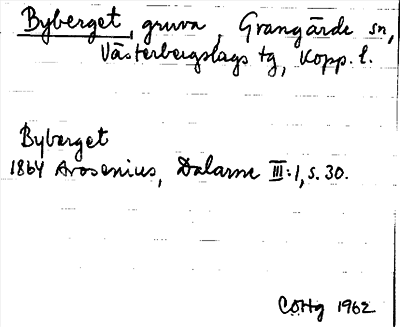 Byberget, gruva, Grangärde sn,
Västerbergslags tg, Kopp. l.
Byberget
1864 Arosenius, Dalarne III:1, s. 30.
COHg 1962